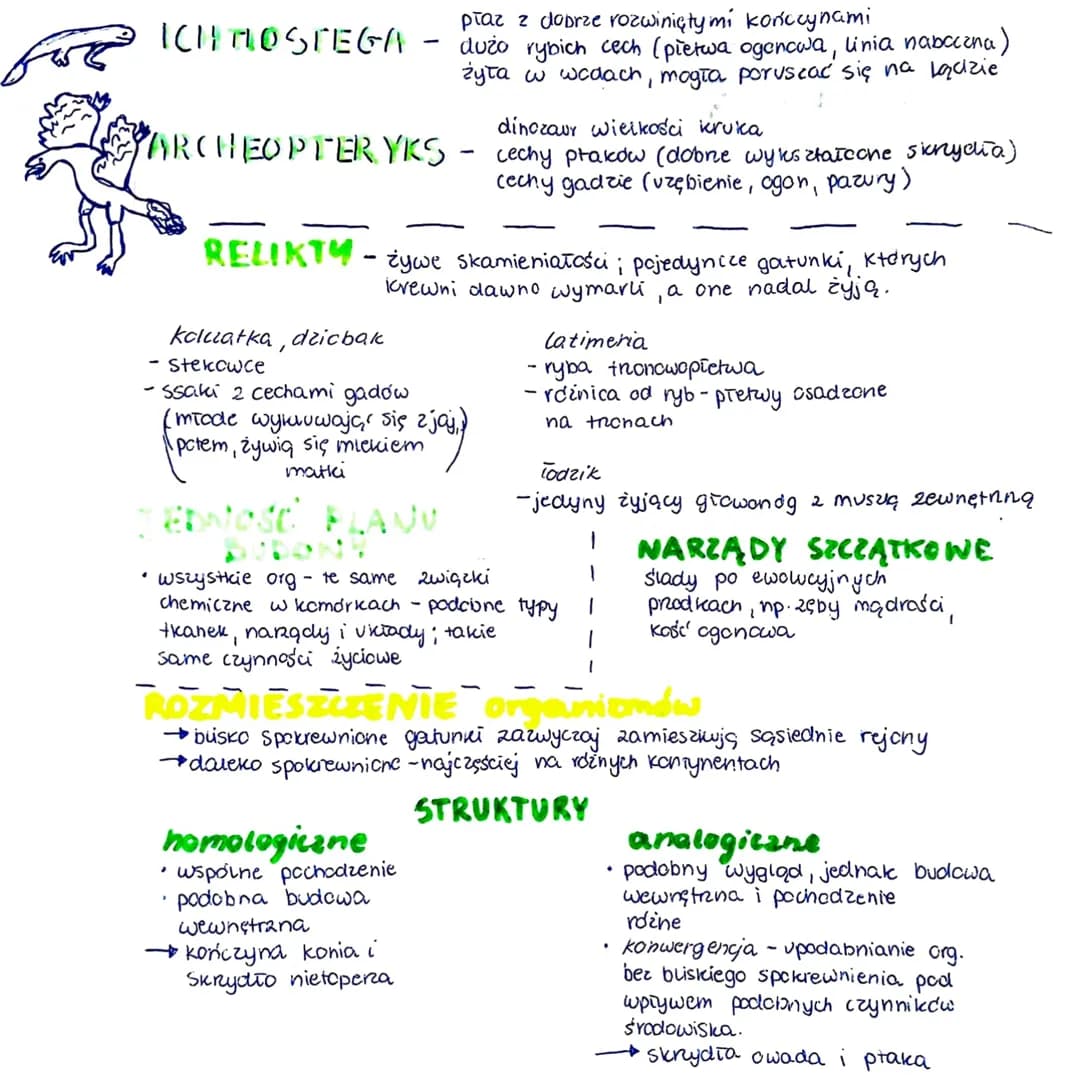 ICHTIOSTEGA -
płaz z dobrze rozwiniętymi kończynami
dużo rybich cech (płetwa ogonowa, linia naboczna)
żyła w wodach, mogła poruszać się na lądzie
ARCHEOPTERYKS -
dinozaur wielkości kruka
cechy ptaków (dobrze wykształcone skrzydła)
cechy gadzie (uzębienie, ogon, pazury)
RELIKTY - żywe skamieniałości; pojedyncze gatunki, których
krewni dawno wymarli, a one nadal żyją.
kolczatka, dziobak
- stekowce
- ssaki z cechami gadów
(młode wykluwając się z jaj,
potem, żywią się mlekiem
matki)
latimeria
- ryba trzonowopłetwa
- różnica od ryb - płetwy osadzone
na trzonach
łodzik
- jedyny żyjący głowonóg z muszlą zewnętrzną
JEDNOŚĆ PLANU
BUDOWY
• wszystkie org - te same związki
chemiczne w komórkach - podobne typy
tkanek, narządy i układy; takie
same czynności życiowe
NARZĄDY SZCZĄTKOWE
ślady po ewolucyjnych
przodkach, np. zęby mądrości,
kość ogonowa
ROZMIESZCZENIE organizmów
→ blisko spokrewnione gatunki zazwyczaj zamieszkują sąsiednie rejony
→ daleko spokrewnione - najczęściej na różnych kontynentach
STRUKTURY
homologiczne
• wspólne pochodzenie
• podobna budowa
wewnętrzna
→ kończyna konia i
skrzydło nietoperza
analogiczne
• podobny wygląd, jednak budowa
wewnętrzna i pochodzenie
różne
• konwergencja - upodabnianie org.
bez bliskiego spokrewnienia pod
wpływem podobnych czynników
środowiska.
→ skrzydła owada i ptaka